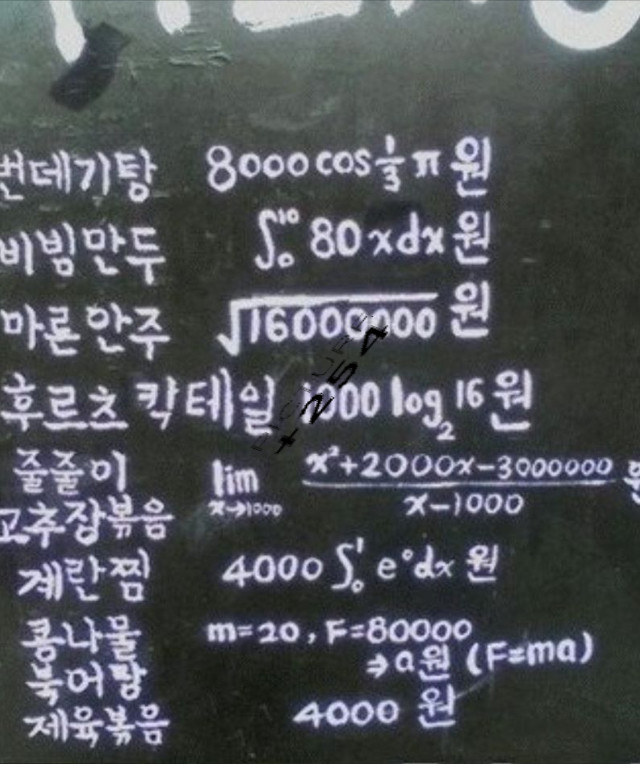 번데기탕 8000 cos 1/3 π 원
비빔만두 ∫₀¹⁰ 80xdx 원
마른안주 √16000000 원
후르츠칵테일 1000 log₂16 원
줄줄이 lim x→1000 x²+2000x-3000000 / x-1000 원
고추장볶음
계란찜 4000 ∫₀¹ e⁰dx 원
콩나물 m=20, F=80000
북어탕 ⇒ a원 (F=ma)
제육볶음 4000 원